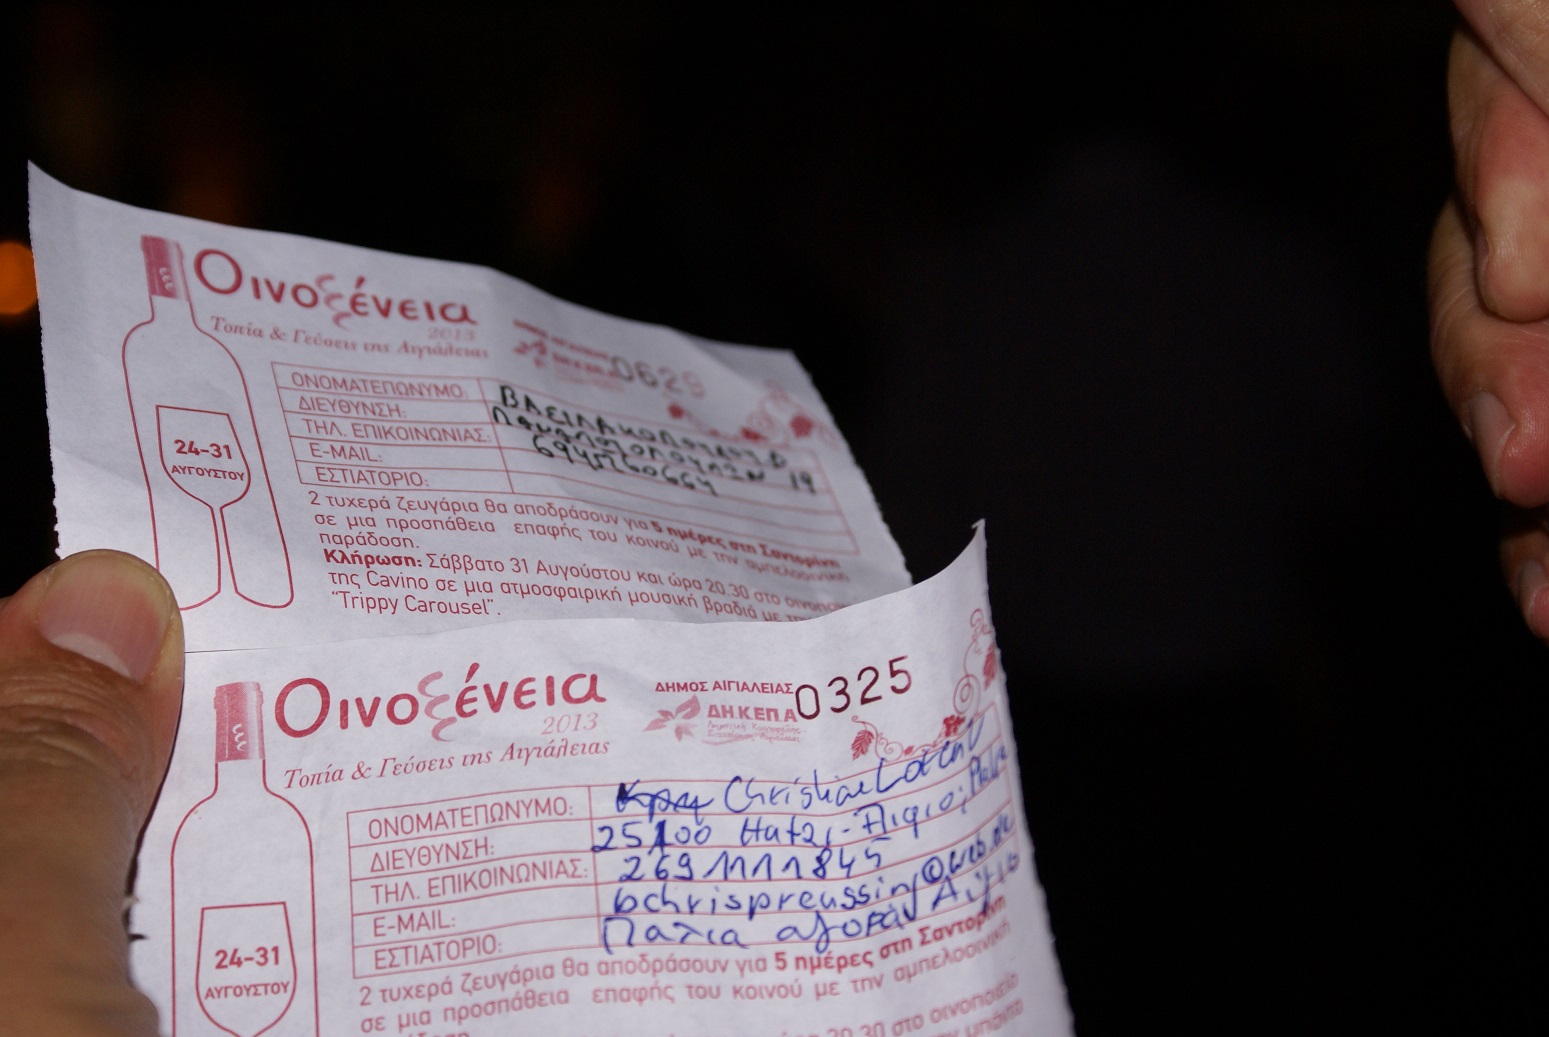 Οινοξένεια
2013
Τοπία & Γεύσεις της Αιγιάλειας
ΔΗΜΟΣ ΑΙΓΙΑΛΕΙΑΣ
0629
ΟΝΟΜΑΤΕΠΩΝΥΜΟ:
ΔΙΕΥΘΥΝΣΗ: 19
ΤΗΛ. ΕΠΙΚΟΙΝΩΝΙΑΣ:
E-MAIL:
ΕΣΤΙΑΤΟΡΙΟ:
24-31
ΑΥΓΟΥΣΤΟΥ
2 τυχερά ζευγάρια θα αποδράσουν για 5 ημέρες στη Σαντορίνη
σε μια προσπάθεια επαφής του κοινού με την αμπελοοινική
παράδοση.
Κλήρωση: Σάββατο 31 Αυγούστου και ώρα 20.30 στο
της Cavino σε μια ατμοσφαιρική μουσική βραδιά με
"Trippy Carousel".
Οινοξένεια
2013
Τοπία & Γεύσεις της Αιγιάλειας
ΔΗΜΟΣ ΑΙΓΙΑΛΕΙΑΣ
ΔΗ.Κ.ΕΠ.Α
0325
ΟΝΟΜΑΤΕΠΩΝΥΜΟ:
ΔΙΕΥΘΥΝΣΗ: 25100
ΤΗΛ. ΕΠΙΚΟΙΝΩΝΙΑΣ: 2691111845
E-MAIL: @web.de
ΕΣΤΙΑΤΟΡΙΟ: Παλια αγορά
24-31
ΑΥΓΟΥΣΤΟΥ
2 τυχερά ζευγάρια θα αποδράσουν για 5 ημέρες στη Σαντορίνη
σε μια προσπάθεια επαφής του κοινού με την αμπελοοινική
20.30 στο οινοποιείο